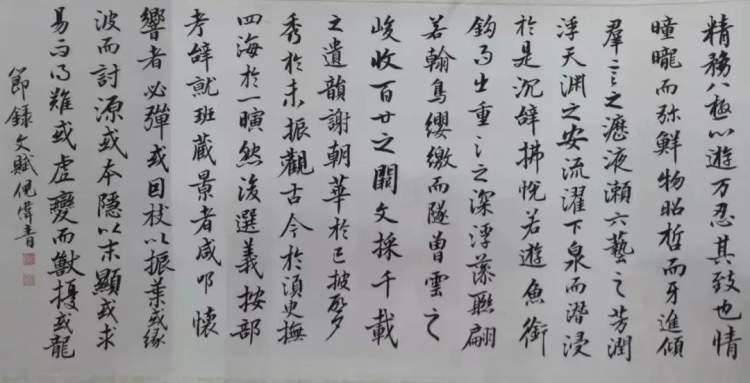 精務八極心遊万忍其致也情
瞳曨而弥鮮物昭晢而牙進傾
羣言之瀝液瀬六藝之芳潤
浮天淵之安流濯下泉而潛浸
於是沉辞拂悦若遊魚銜
鈎而出重〻之深浮藻聯翩
若翰鳥纓繳而隧曾雲之
峻收百世之闕文採千載
之遺韻謝朝華於已披啓夕
秀於未振觀古今於須臾撫
四海於一瞚然後選義按部
考辞就班蔵景者咸叩懷
響者必彈或因枝以振葉或緣
波而討源或本隱以末顯或求
易而得難或虚變而獸擾或龍
節録文賦倪偉青